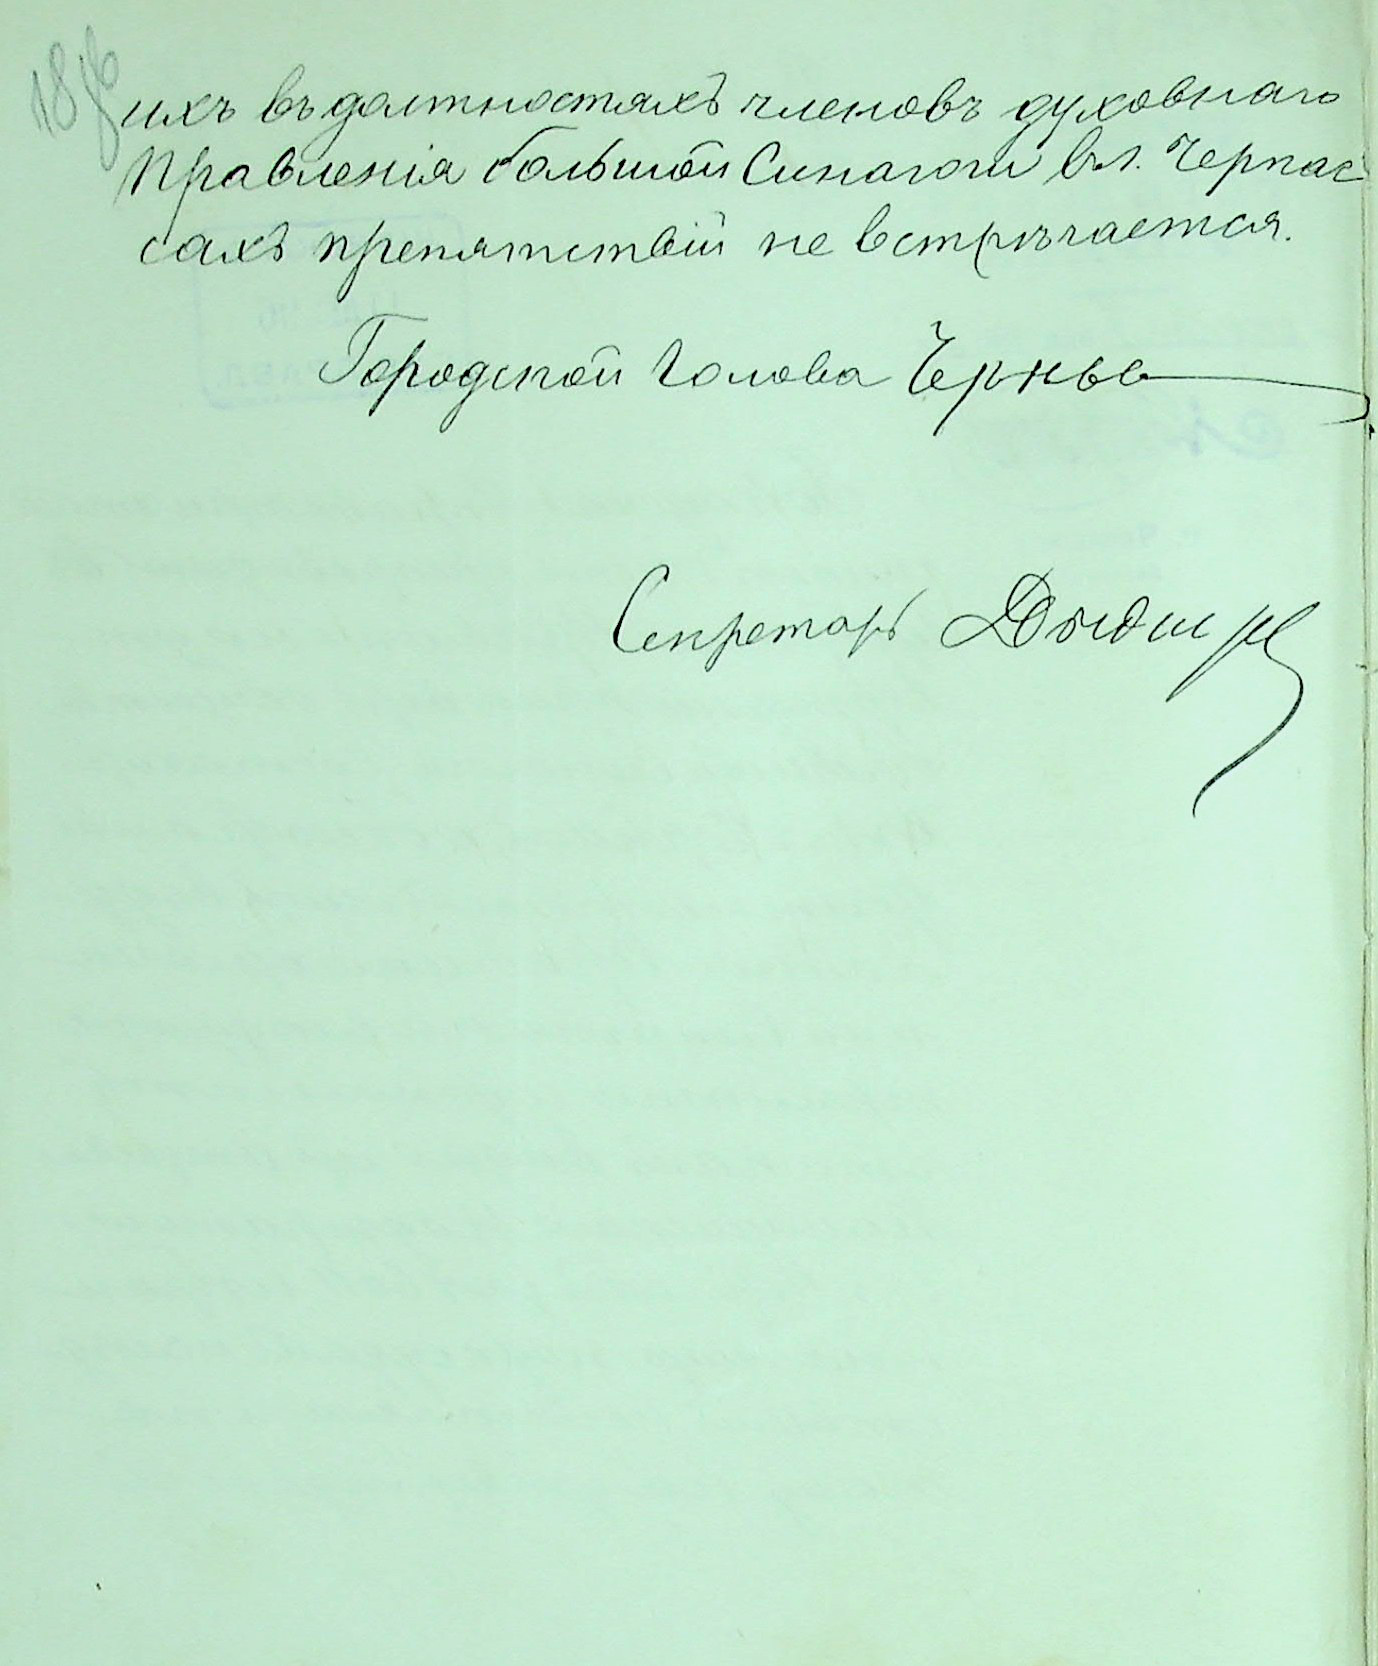 ихъ въ должностяхъ членовъ духовнаго
Правленія большой Синагоги въ г. Черкас
сахъ препятствій не встрѣчается.
Городской Голова
Секретарь